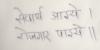 सेवार्थ आइये ।
रोजगार पाइये ॥